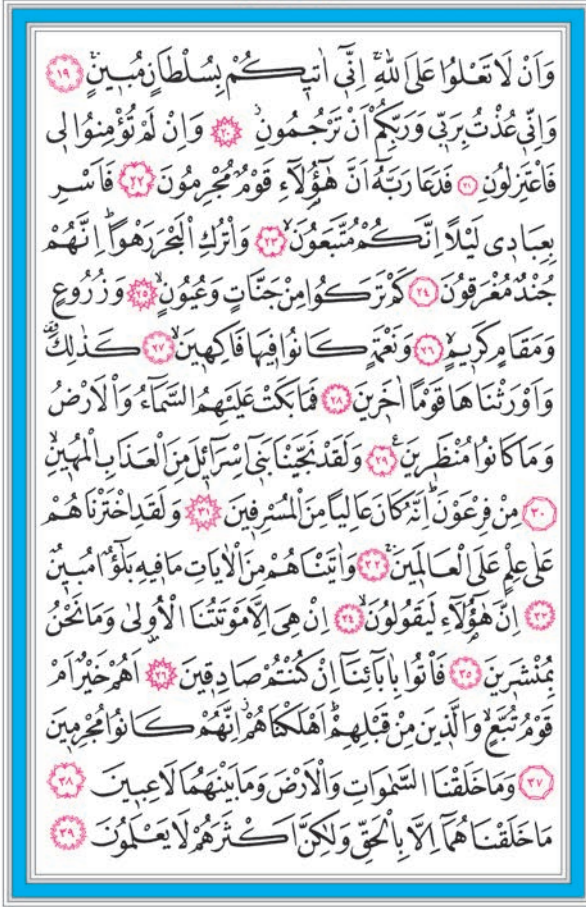 وَاَنْ لَا تَعْلُوا عَلَى اللّٰهِۚ اِنّ۪ٓي اٰت۪يكُمْ بِسُلْطَانٍ مُب۪ينٍۚ ﴿١٩﴾
وَاِنّ۪ي عُذْتُ بِرَبّ۪ي وَرَبِّكُمْ اَنْ تَرْجُمُونِۘ ﴿٢٠﴾ وَاِنْ لَمْ تُؤْمِنُوا ل۪ي
فَاعْتَزِلُونِ ﴿٢١﴾ فَدَعَا رَبَّهُٓ اَنَّ هٰٓؤُ۬لَٓاءِ قَوْمٌ مُجْرِمُونَ ﴿٢٢﴾ فَاَسْرِ
بِعِبَاد۪ي لَيْلاً اِنَّكُمْ مُتَّبَعُونَۙ ﴿٢٣﴾ وَاتْرُكِ الْبَحْرَ رَهْواًۜ اِنَّهُمْ
جُنْدٌ مُغْرَقُونَ ﴿٢٤﴾ كَمْ تَرَكُوا مِنْ جَنَّاتٍ وَعُيُونٍۙ ﴿٢٥﴾ وَزُرُوعٍ
وَمَقَامٍ كَر۪يمٍۙ ﴿٢٦﴾ وَنَعْمَةٍ كَانُوا ف۪يهَا فَاكِه۪ينَۙ ﴿٢٧﴾ كَذٰلِكَ۠
وَاَوْرَثْنَاهَا قَوْماً اٰخَر۪ينَ ﴿٢٨﴾ فَمَا بَكَتْ عَلَيْهِمُ السَّمَٓاءُ وَالْاَرْضُ
وَمَا كَانُوا مُنْظَر۪ينَ۟ ﴿٢٩﴾ وَلَقَدْ نَجَّيْنَا بَن۪ٓي اِسْرَٓائ۪لَ مِنَ الْعَذَابِ الْمُه۪ينِۙ
﴿٣٠﴾ مِنْ فِرْعَوْنَۜ اِنَّهُ كَانَ عَالِياً مِنَ الْمُسْرِف۪ينَ ﴿٣١﴾ وَلَقَدِ اخْتَرْنَاهُمْ
عَلٰى عِلْمٍ عَلَى الْعَالَم۪ينَۚ ﴿٣٢﴾ وَاٰتَيْنَاهُمْ مِنَ الْاٰيَاتِ مَا ف۪يهِ بَلٰٓؤٌ۬ا مُب۪ينٌ
﴿٣٣﴾ اِنَّ هٰٓؤُ۬لَٓاءِ لَيَقُولُونَۙ ﴿٣٤﴾ اِنْ هِيَ اِلَّا مَوْتَتُنَا الْاُو۫لٰى وَمَا نَحْنُ
بِمُنْشَر۪ينَ ﴿٣٥﴾ فَأْتُوا بِاٰبَٓائِنَٓا اِنْ كُنْتُمْ صَادِق۪ينَ ﴿٣٦﴾ اَهُمْ خَيْرٌ اَمْ
قَوْمُ تُبَّعٍۙ وَالَّذ۪ينَ مِنْ قَبْلِهِمْۜ اَهْلَكْنَاهُمْۘ اِنَّهُمْ كَانُوا مُجْرِم۪ينَ
﴿٣٧﴾ وَمَا خَلَقْنَا السَّمٰوَاتِ وَالْاَرْضَ وَمَا بَيْنَهُمَا لَاعِب۪ينَ ﴿٣٨﴾
مَا خَلَقْنَاهُمَٓا اِلَّا بِالْحَقِّ وَلٰكِنَّ اَكْثَرَهُمْ لَا يَعْلَمُونَ ﴿٣٩﴾